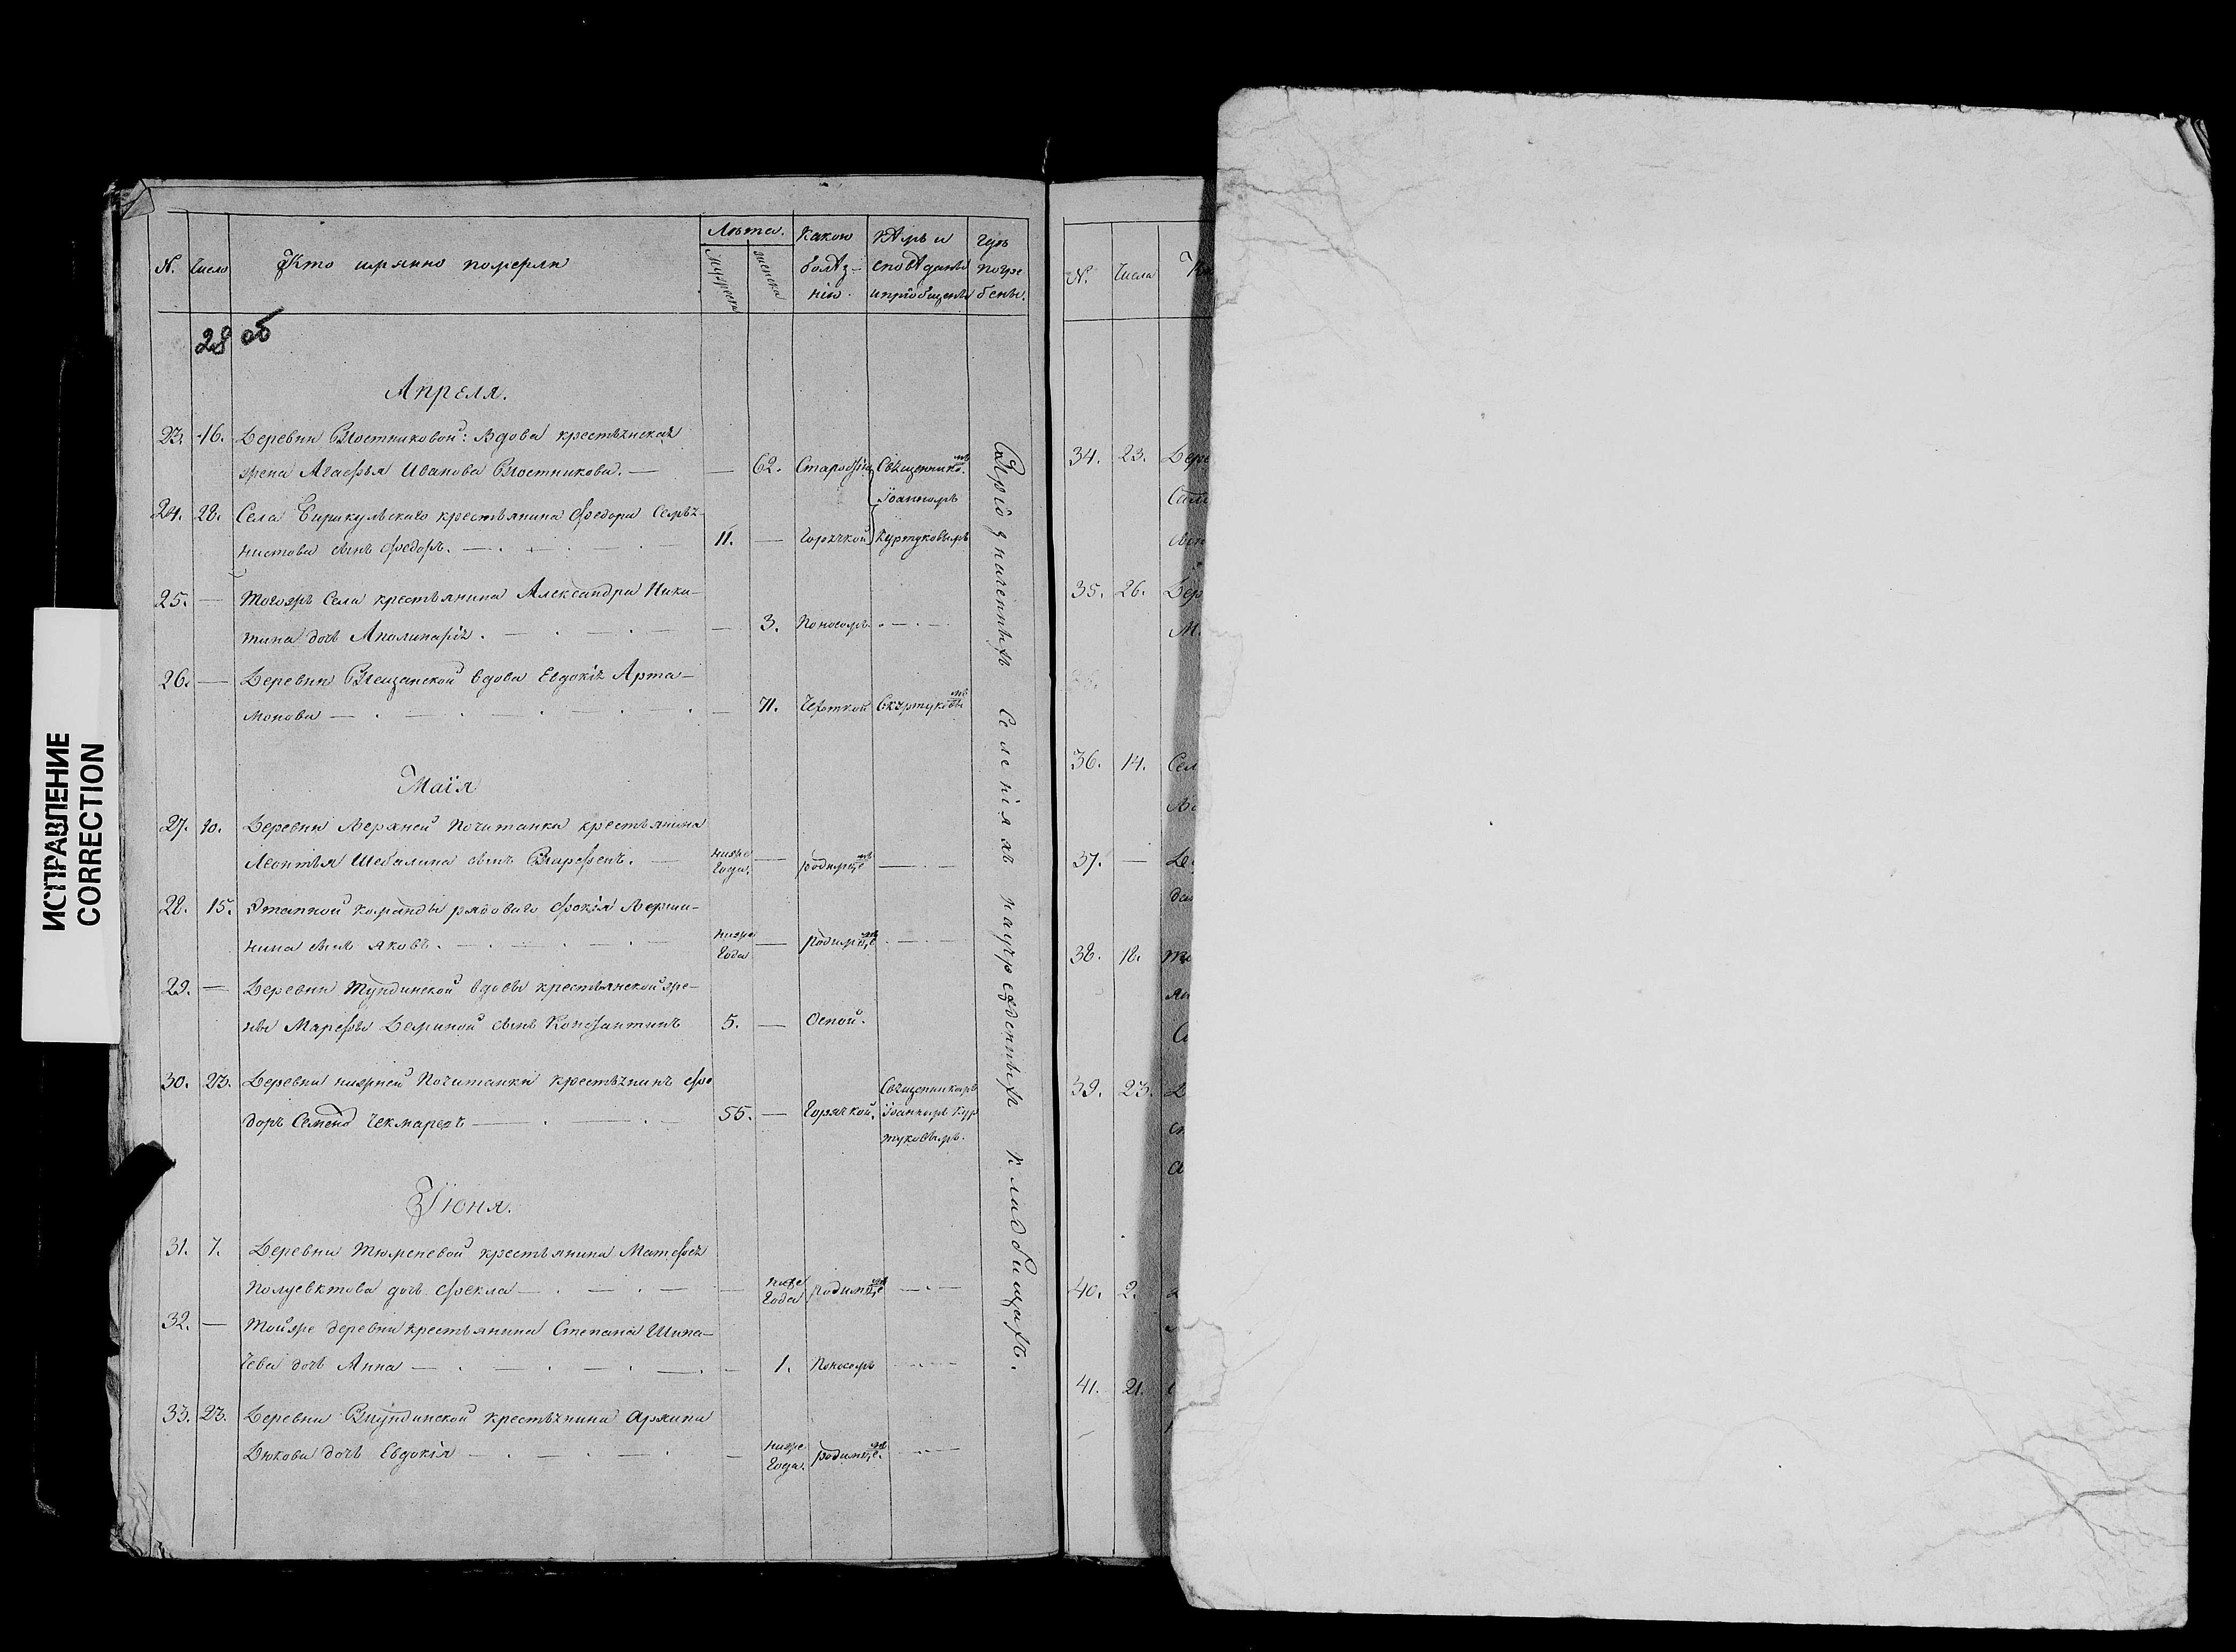 ИСПРАВЛЕНИЕ
CORRECTION
№. Число Кто имянно померли Лѣта. мужеска женска Какою болѣзнію. Кѣмъ исповѣданы и пріобщены Гдѣ погребены.
28 об
Апреля.
23. 16. Деревни Постниковой: вдова крестьянская
жена Агафья Иванова Постникова. — — 62. Священнико.мъ
Іоанномъ
24. 28. Села крестьянина Федора
сынъ Федоръ. — 11. — Горячкой Куртуковымъ
25. — Тогожъ Села крестьянина Александра Ники-
тина дочь Аполинарія. — 3. Поносомъ.
26. — Деревни вдова Евдокія Арта-
монова — 71. Чехоткой С. Куртуковымъ
Маія
27. 10. Деревни Верхней Почитанки крестьянина
Леонтья Шабалина сынъ Парфенъ. — ниже года. — родимце.мъ —
28. 15. Этапной команды рядоваго Фокія Верши-
нина сынъ Яковъ. — ниже года — родимце.мъ —
29. — Деревни Тундинской вдовы крестьянской же-
ны Марфы Деминой сынъ Константинъ 5. — Оспой.
30. 23. Деревни нижней Почитанки крестьянинъ Фе
доръ Семенов Чекмаревъ — 55. — Горячкой. Священникомъ
Іоанномъ Кур
туковымъ.
Іюня.
31. 7. Деревни Тюменевой крестьянина Матфея
Полуевктова дочь Фекла — ниже года родимце.мъ —
32. — Тойже деревни крестьянина Степана Шипа-
чева дочь Анна — 1. Поносомъ
33. 23. Деревни Тундинской крестьянина Архипа
Дюкова дочь Евдокія — ниже года. родимце.мъ
При означенныхъ Селеніяхъ на учрежденныхъ кладбищахъ.
№. Числа
34. 23.
35. 26.
36. 14. Сел
37. —
38. 18.
39. 23.
40. 2.
41. 21.